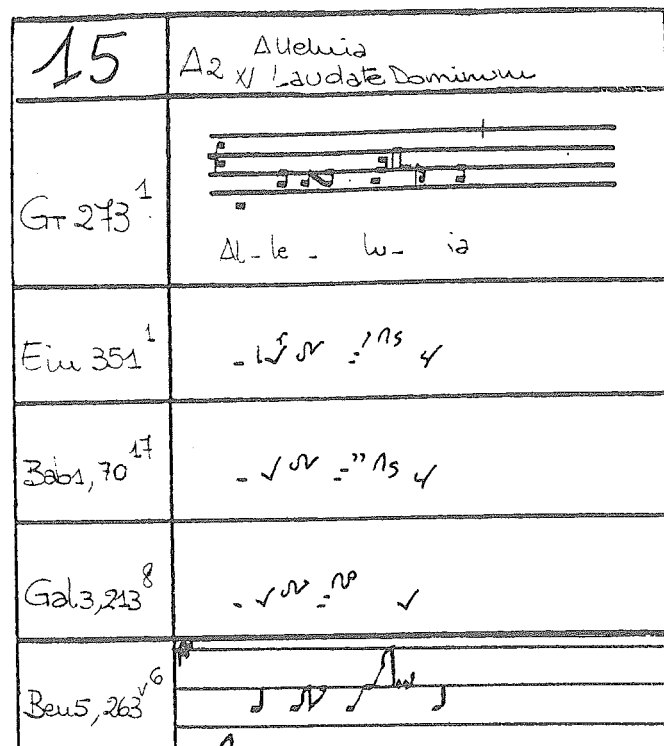 15
A2 Alleluia
℣ Laudate Dominum
GT 273 1
Al - le - lu - ia
Ein 351 1
Bab1, 70 17
Gal3, 213 8
Ben5, 263v 6